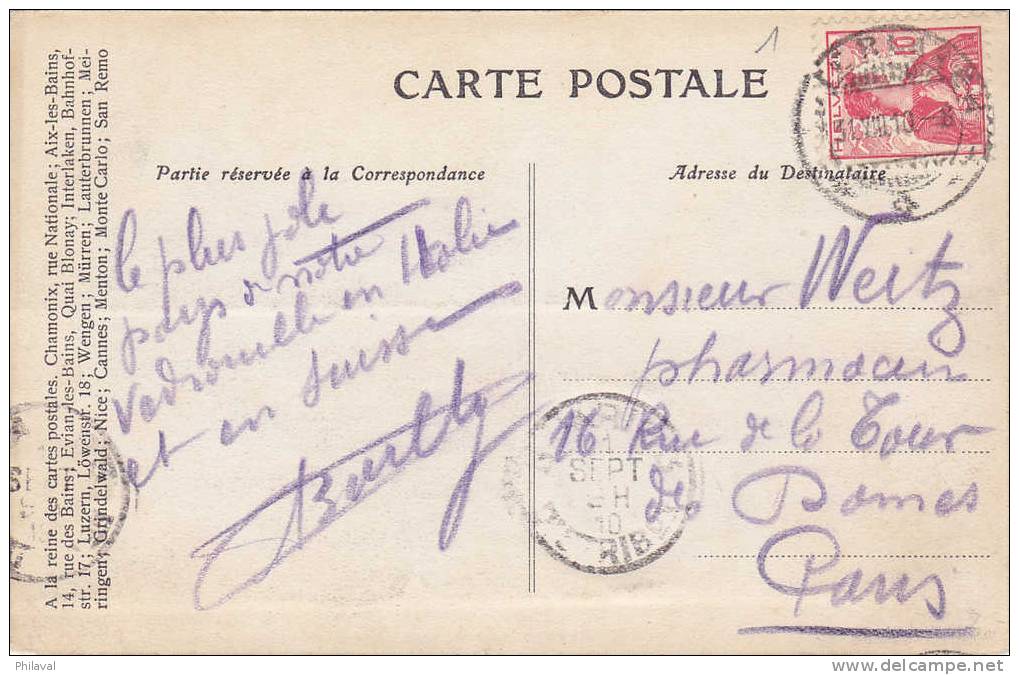 1
CARTE POSTALE
HELVETIA
10
31.VIII.10-8
Partie réservée à la Correspondance
Adresse du Destinataire
A la reine des cartes postales. Chamonix, rue Nationale; Aix-les-Bains,
14, rue des Bains; Evian-les-Bains, Quai Blonay; Interlaken, Bahnhof-
str. 17; Luzern, Löwenstr. 18; Wengen; Mürren; Lauterbrunnen; Mei-
ringen; Grindelwald; Nice; Cannes; Menton; Monte Carlo; San Remo
le plus joli
pays de notre
en Italie
et en Suisse
Monsieur Weitz
pharmacien
16 Rue de la Tour
des Dames
Paris
SEPT
10
Philaval
www.delcampe.net